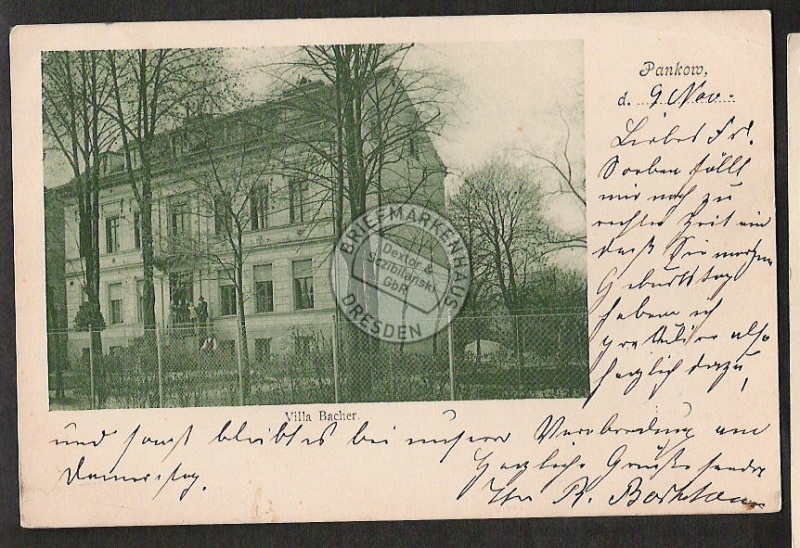 Pankow,
d. 9 Nov.
Liebes Frl.
Soeben fällt
mir noch zu
rechter Zeit ein
daß Sie morgen
Geburtstag
haben ich
gratulire also
herzlich dazu,
und sonst bleibt es bei unserer Verabredung am
Donnerstag.
Herzliche Grüße sendet
Ihr R.
Villa Bacher.
BRIEFMARKENHAUS
Dextor &
Sezibilonski
GbR
DRESDEN